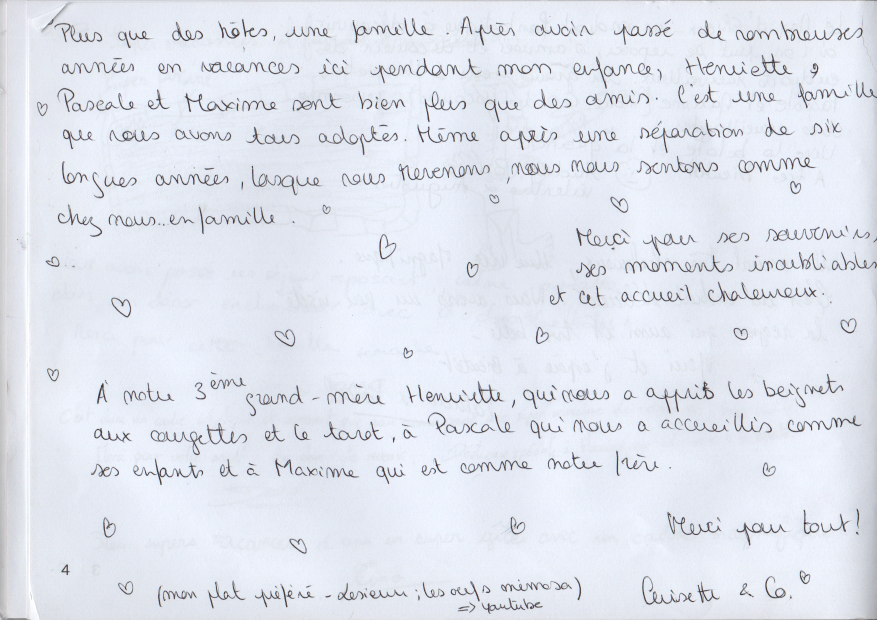 Plus que des hôtes, une famille. Après avoir passé de nombreuses
années en vacances ici pendant mon enfance, Henriette,
Pascale et Maxime sont bien plus que des amis. C'est une famille
que nous avons tous adoptés. Même après une séparation de six
longues années, losque nous revenons nous nous sentons comme
chez nous.. en famille.
Merci pour ses souvenirs,
ses moments inoubliables
et cet accueil chaleureux.
À notre 3ème grand-mère Henriette, qui nous a appris les beignets
aux courgettes et le tarot, à Pascale qui nous a accueillis comme
ses enfants et à Maxime qui est comme notre frère.
Merci pour tout!
4
(mon plat préféré - Lesieur ; les oeufs mimosa)
=> youtube
& Co.